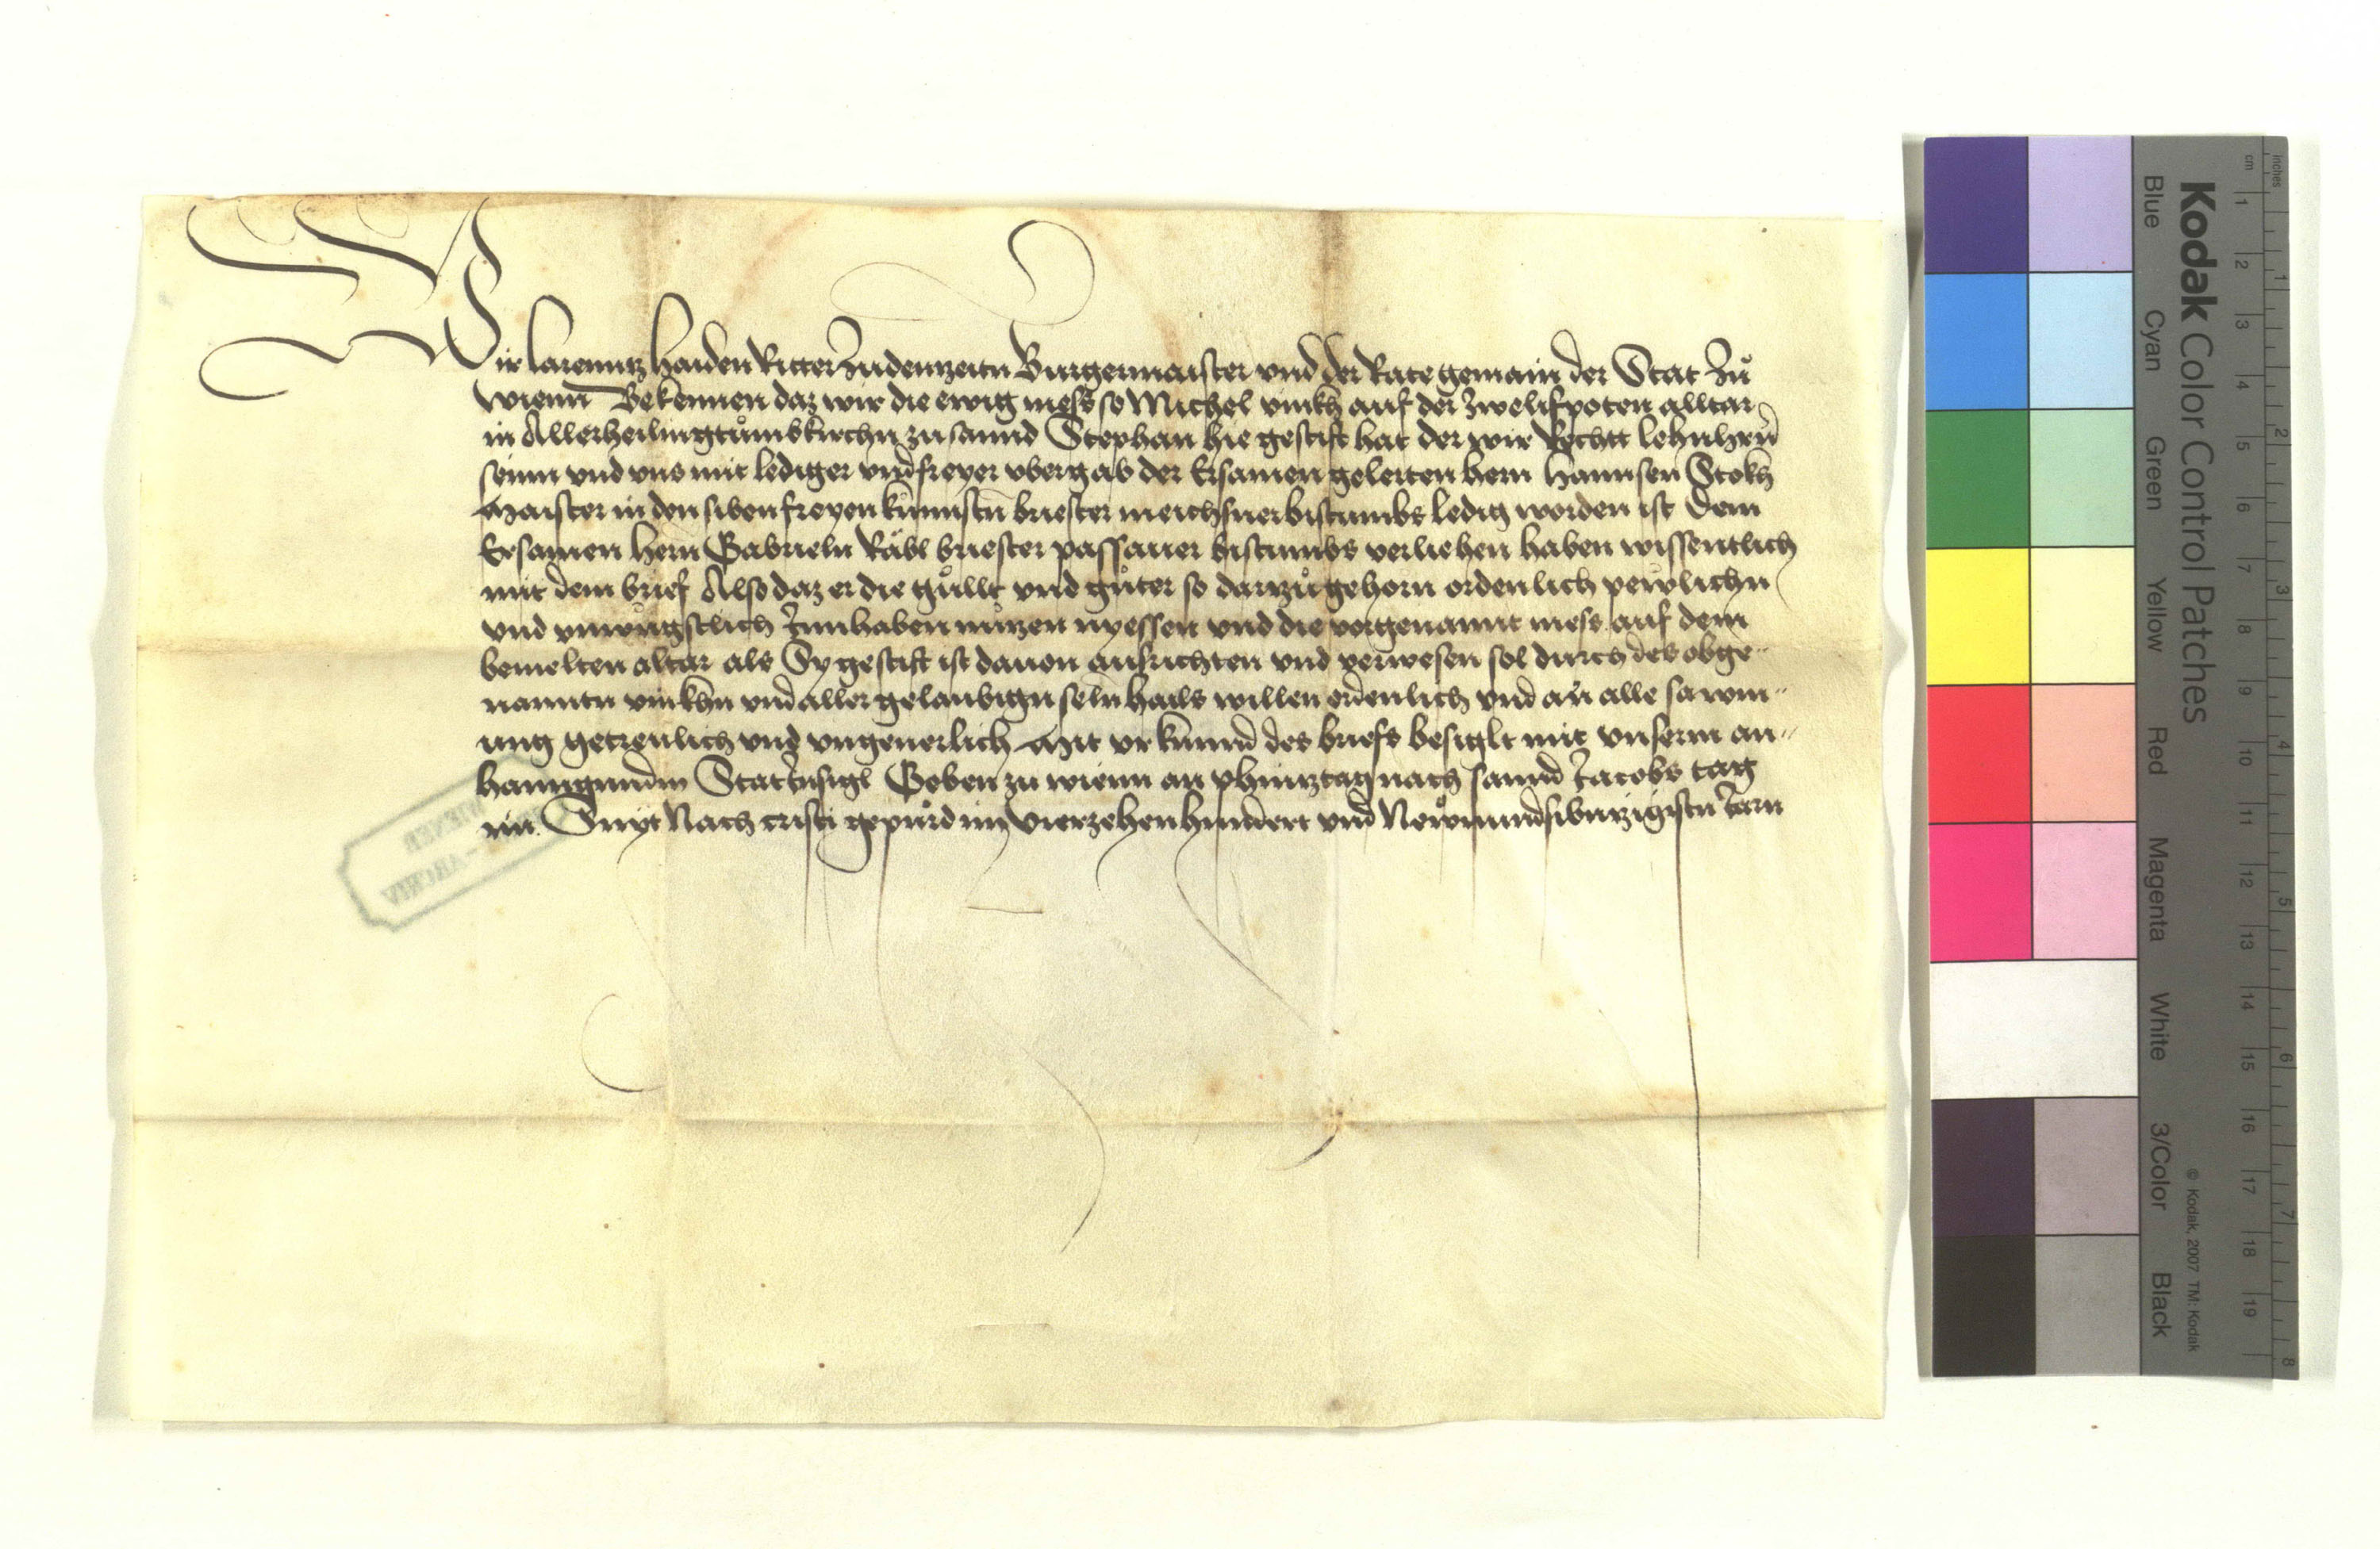 Wir larenntz haiden Ritter zudenzeitn Burgermaister vnd der Rate gemain der Stat zů
wienn Bekennen daz wir die ewig mess so Michel vinkh auf der zwelifpoten alltar
in Allerheilingtůmbkirchn zu sannd Stephan hie gestift hat der wir Rechtt lehnhern
seinn vnd vns mit lediger vnd freyer vbergab der Ersamen gelerten hern Hannsen Stokh
Maister in den siben freyen kunnstn briester meichsnerbistumbs ledig worden ist Dem
Ersamen hern Gabrieln Räbl briester passauer bistumbs verliehen haben wissentlich
mit dem brief Also daz er die gůllt vnd gůter so darzů gehorn ordenlich pewlichn
vnd vnwůgstlich Innhaben nůtzen nyessen vnd die vorgenannt mess auf dem
bemelten altar als Sy gestift ist dauon ausrichten vnd verwesen sol durch des obge-
nanntn vinkhn vnd aller gelaubign seln hails willen ordenlich vnd an alle sawm-
ung getreulich vnd vngeuerlich Mit vrkunnd des briefs besiglt mit vnserm an-
hanngunndm Stat Insigl Geben zu wienn an phintztag nach sannd Jacobs tag
im Snyt Nach cristi gepůrd im Vierzehenhundert vnd Newnundsibnzigistn Jarn
ARCHIV
Kodak Color Control Patches
Blue Cyan Green Yellow Red Magenta White 3/Color Black
© Kodak, 2007 TM: Kodak
inches 1 2 3 4 5 6 7 8
cm 1 2 3 4 5 6 7 8 9 10 11 12 13 14 15 16 17 18 19